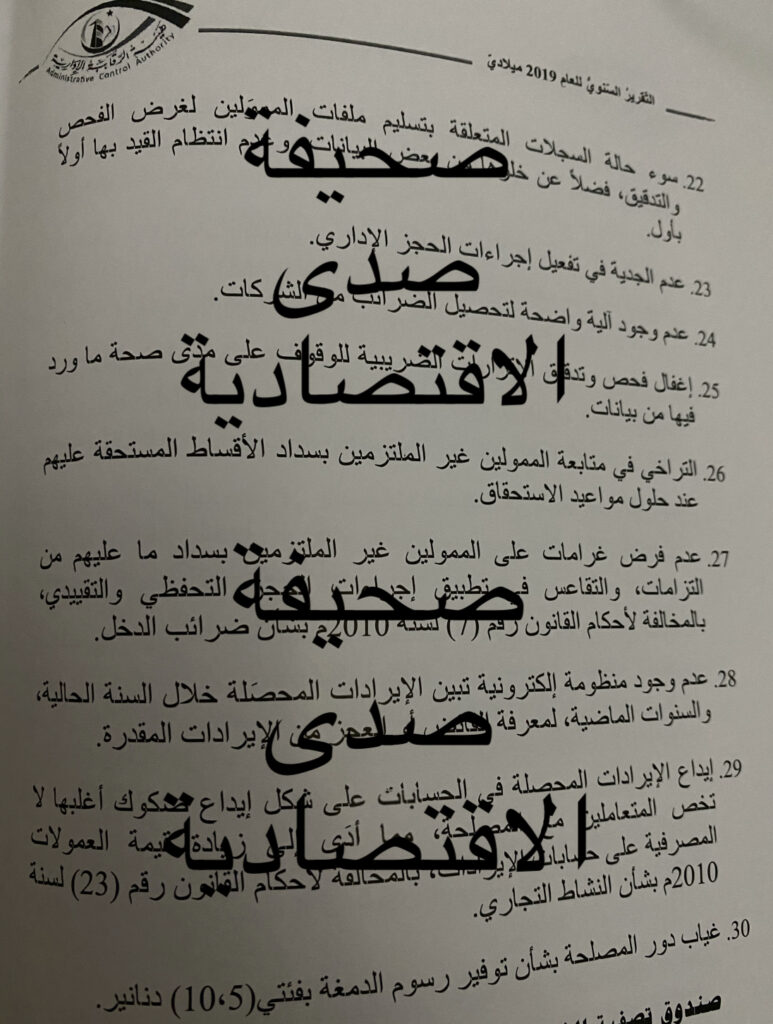 هيئة الرقابة الإدارية
Administrative Control Authority
التقرير السنوي للعام 2019 ميلادي
22. سوء حالة السجلات المتعلقة بتسليم ملفات الممولين لغرض الفحص
والتدقيق، فضلاً عن من بعض البيانات وعدم انتظام القيد بها أولاً
بأول.
صحيفة
23. عدم الجدية في تفعيل إجراءات الحجز الإداري.
صدى
24. عدم وجود آلية واضحة لتحصيل الضرائب من الشركات.
الاقتصادية
25. إغفال فحص وتدقيق الإقرارات الضريبية للوقوف على مدى صحة ما ورد
فيها من بيانات.
26. التراخي في متابعة الممولين غير الملتزمين بسداد الأقساط المستحقة عليهم
عند حلول مواعيد الاستحقاق.
27. عدم فرض غرامات على الممولين غير الملتزمين بسداد ما عليهم من
التزامات، والتقاعس في تطبيق إجراءات الحجز التحفظي والتقييدي،
صحيفة
بالمخالفة لأحكام القانون رقم (7) لسنة 2010م بشأن ضرائب الدخل.
28. عدم وجود منظومة إلكترونية تبين الإيرادات المحصَلة خلال السنة الحالية،
والسنوات الماضية، لمعرفة الفائض أو العجز من الإيرادات المقدرة.
صدى
29. إيداع الإيرادات المحصلة في الحسابات على شكل إيداع صكوك أغلبها لا
تخص المتعاملين مع المصلحة، مما أدى إلى زيادة قيمة العمولات
الاقتصادية
المصرفية على حسابات الإيرادات، بالمخالفة لأحكام القانون رقم (23) لسنة
2010م بشأن النشاط التجاري.
30. غياب دور المصلحة بشأن توفير رسوم الدمغة بفئتي(10،5) دنانير.
صندوق